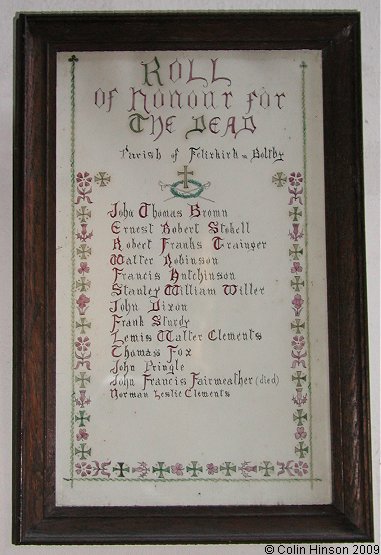 Roll
of Honour for
The Dead
Parish of Felixkirk w Boltby
John Thomas Brown
Ernest Robert Stokell
Robert Franks Trainger
Walter Robinson
Francis Hutchinson
Stanley William Willer
John Dixon
Frank Sturdy
Lewis Walter Clements
Thomas Fox
John Pringle
John Francis Fairweather (died)
Norman Leslie Clements
© Colin Hinson 2009